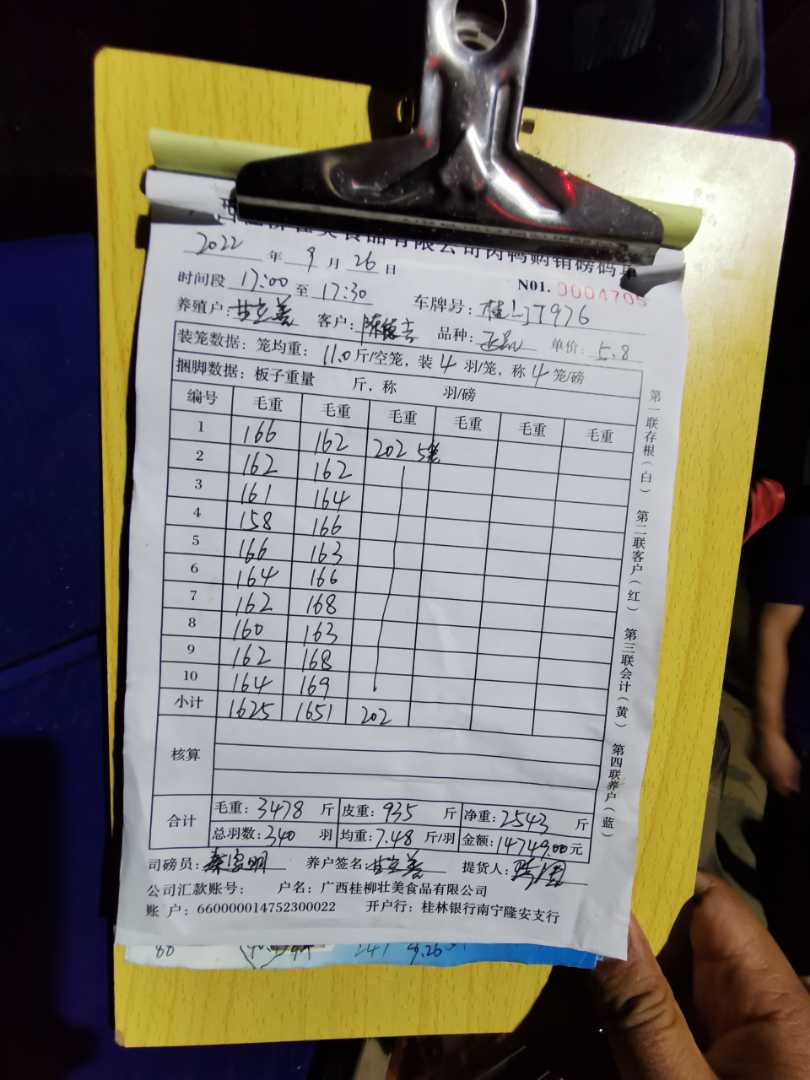 食品有限公司肉鸭购销磅码单
2022 年 9 月 26 日
N01. 0004705
时间段 17:00 至 17:30 车牌号: 桂 J7976
养殖户: 甘立善 客户: 品种: 正品 单价: 5.8
装笼数据: 笼均重: 11.0 斤/空笼, 装 4 羽/笼, 称 4 笼/磅
捆脚数据: 板子重量 斤, 称 羽/磅
编号 毛重 毛重 毛重 毛重 毛重 毛重
1 166 162 202 5笼
2 162 162
3 161 164
4 158 166
5 166 163
6 164 166
7 162 168
8 160 163
9 162 168
10 164 169
小计 1625 1651 202
核算
合计 毛重: 3478 斤 皮重: 935 斤 净重: 2543 斤
总羽数: 340 羽 均重: 7.48 斤/羽 金额: 14749.00 元
司磅员: 养户签名: 甘立善 提货人:
公司汇款账号: 户名: 广西桂柳壮美食品有限公司
账 户: 660000014752300022 开户行: 桂林银行南宁隆安支行
第一联存根(白) 第二联客户(红) 第三联会计(黄) 第四联养户(蓝)
80 241 9.26